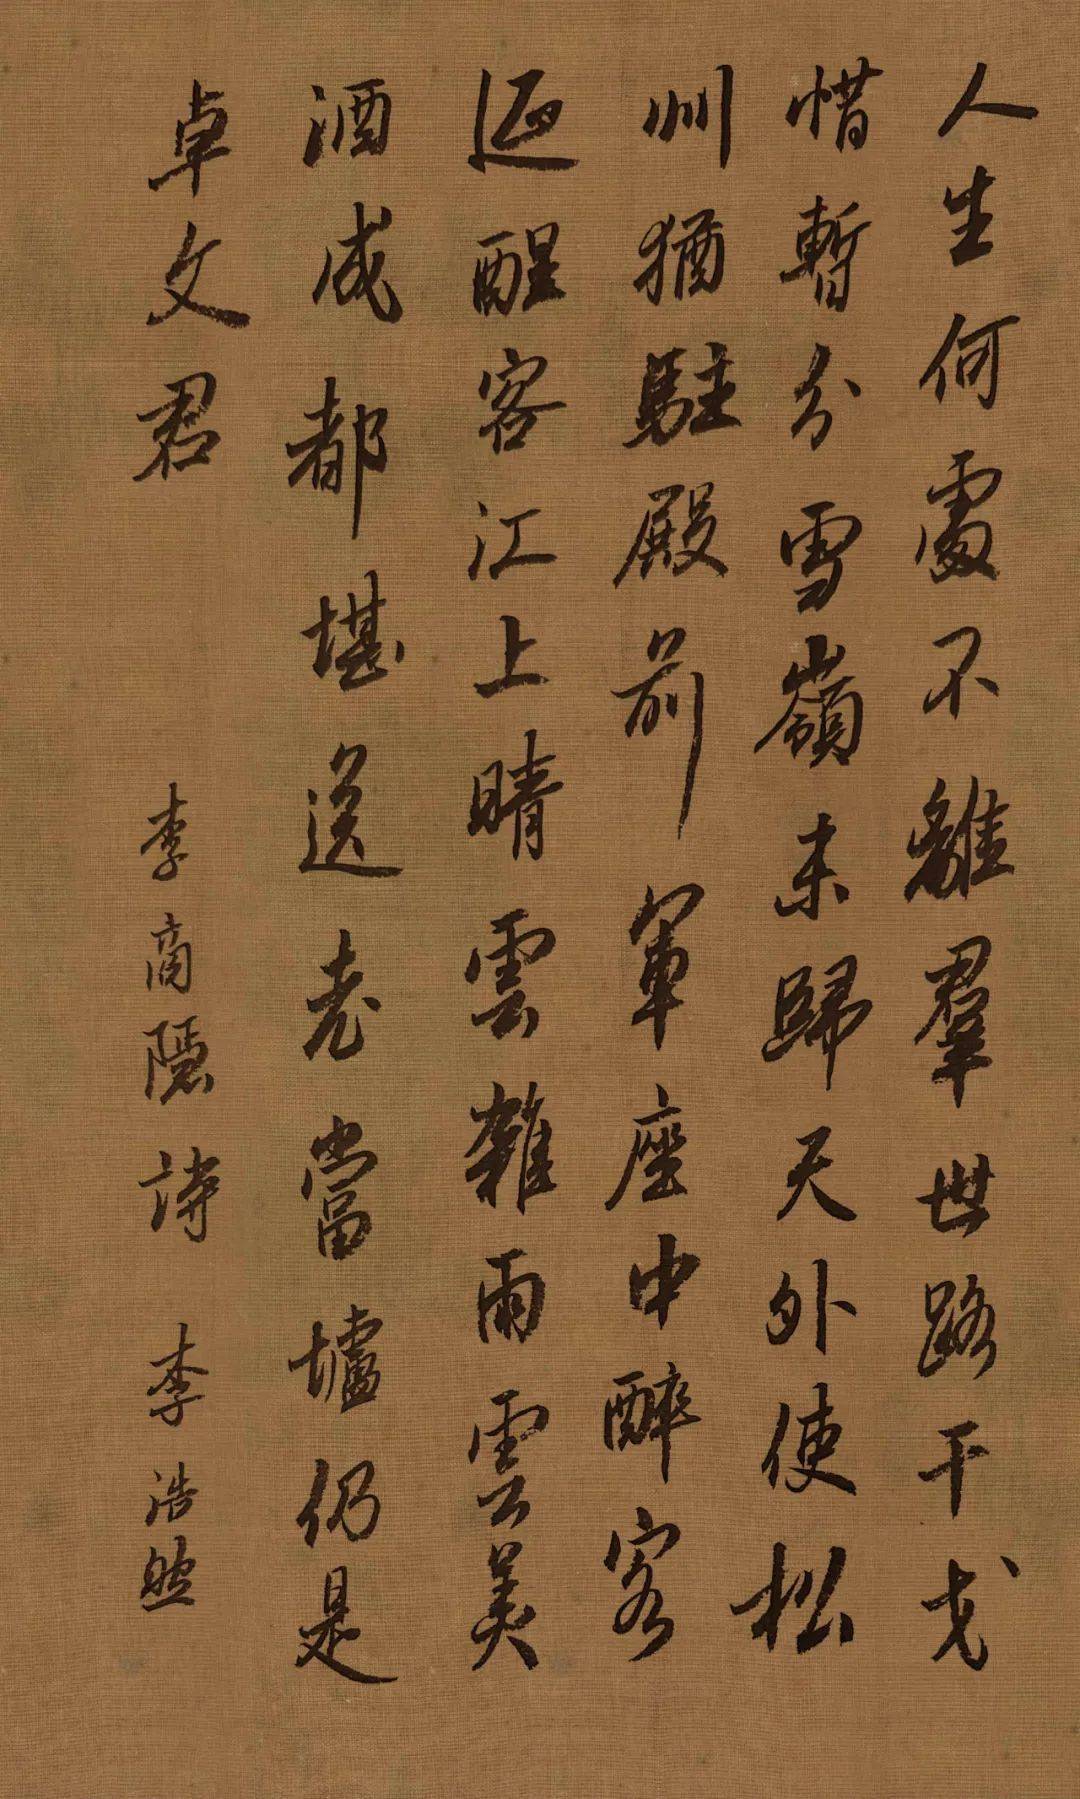 人生何處不離羣世路干戈
惜暫分雪嶺未歸天外使松
州猶駐殿前軍座中醉客
延醒客江上晴雲雜雨雲美
酒成都堪送老當壚仍是
卓文君
李商隱詩 李浩然